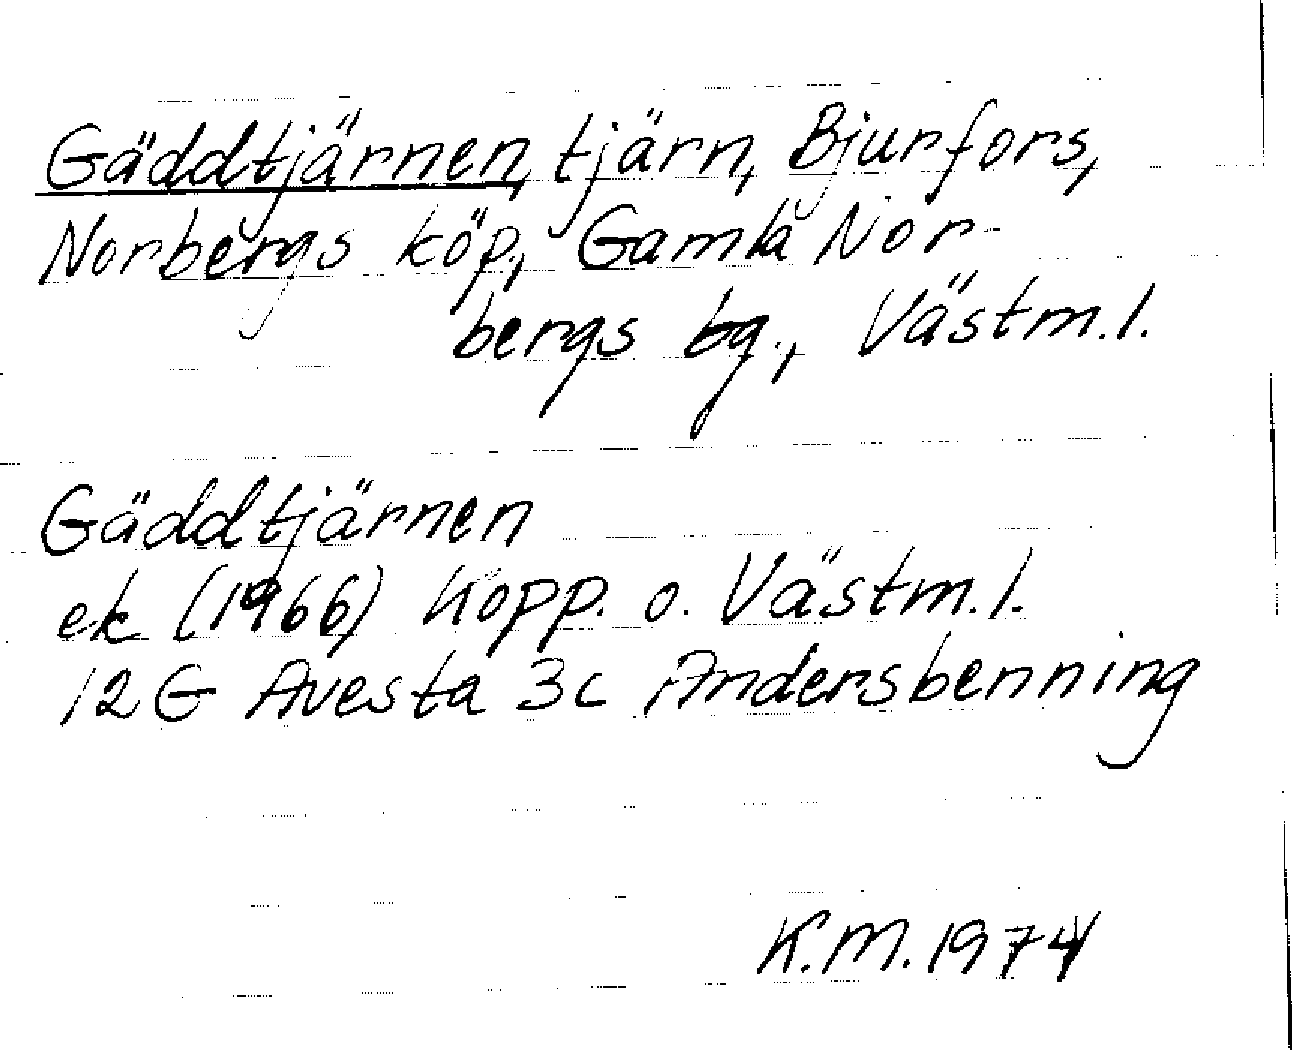 Gäddtjärnen, tjärn, Bjurfors,
Norbergs köp, Gamla Nor-
bergs bg., Västm.l.
Gäddtjärnen
ek (1966) Kopp. o. Västm.l.
12G Avesta 3c Andersbenning
K.M. 1974